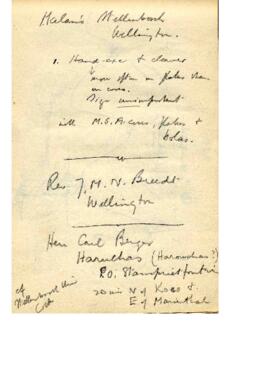 Malan's Stellenbosch
Wellington.
1. Hand-axe & cleaver
more often on flakes than
on cores.
Size unimportant
with M.S.A. cores, flakes &
bolas.
Rev. J. M. N. Breedt
Wellington
Herr Carl Berger
Haruchas (Harowchas?)
P.O. Stampriet fontein
20 min N of Koes &
E of Mariental
cf
Stellenbosch Univ